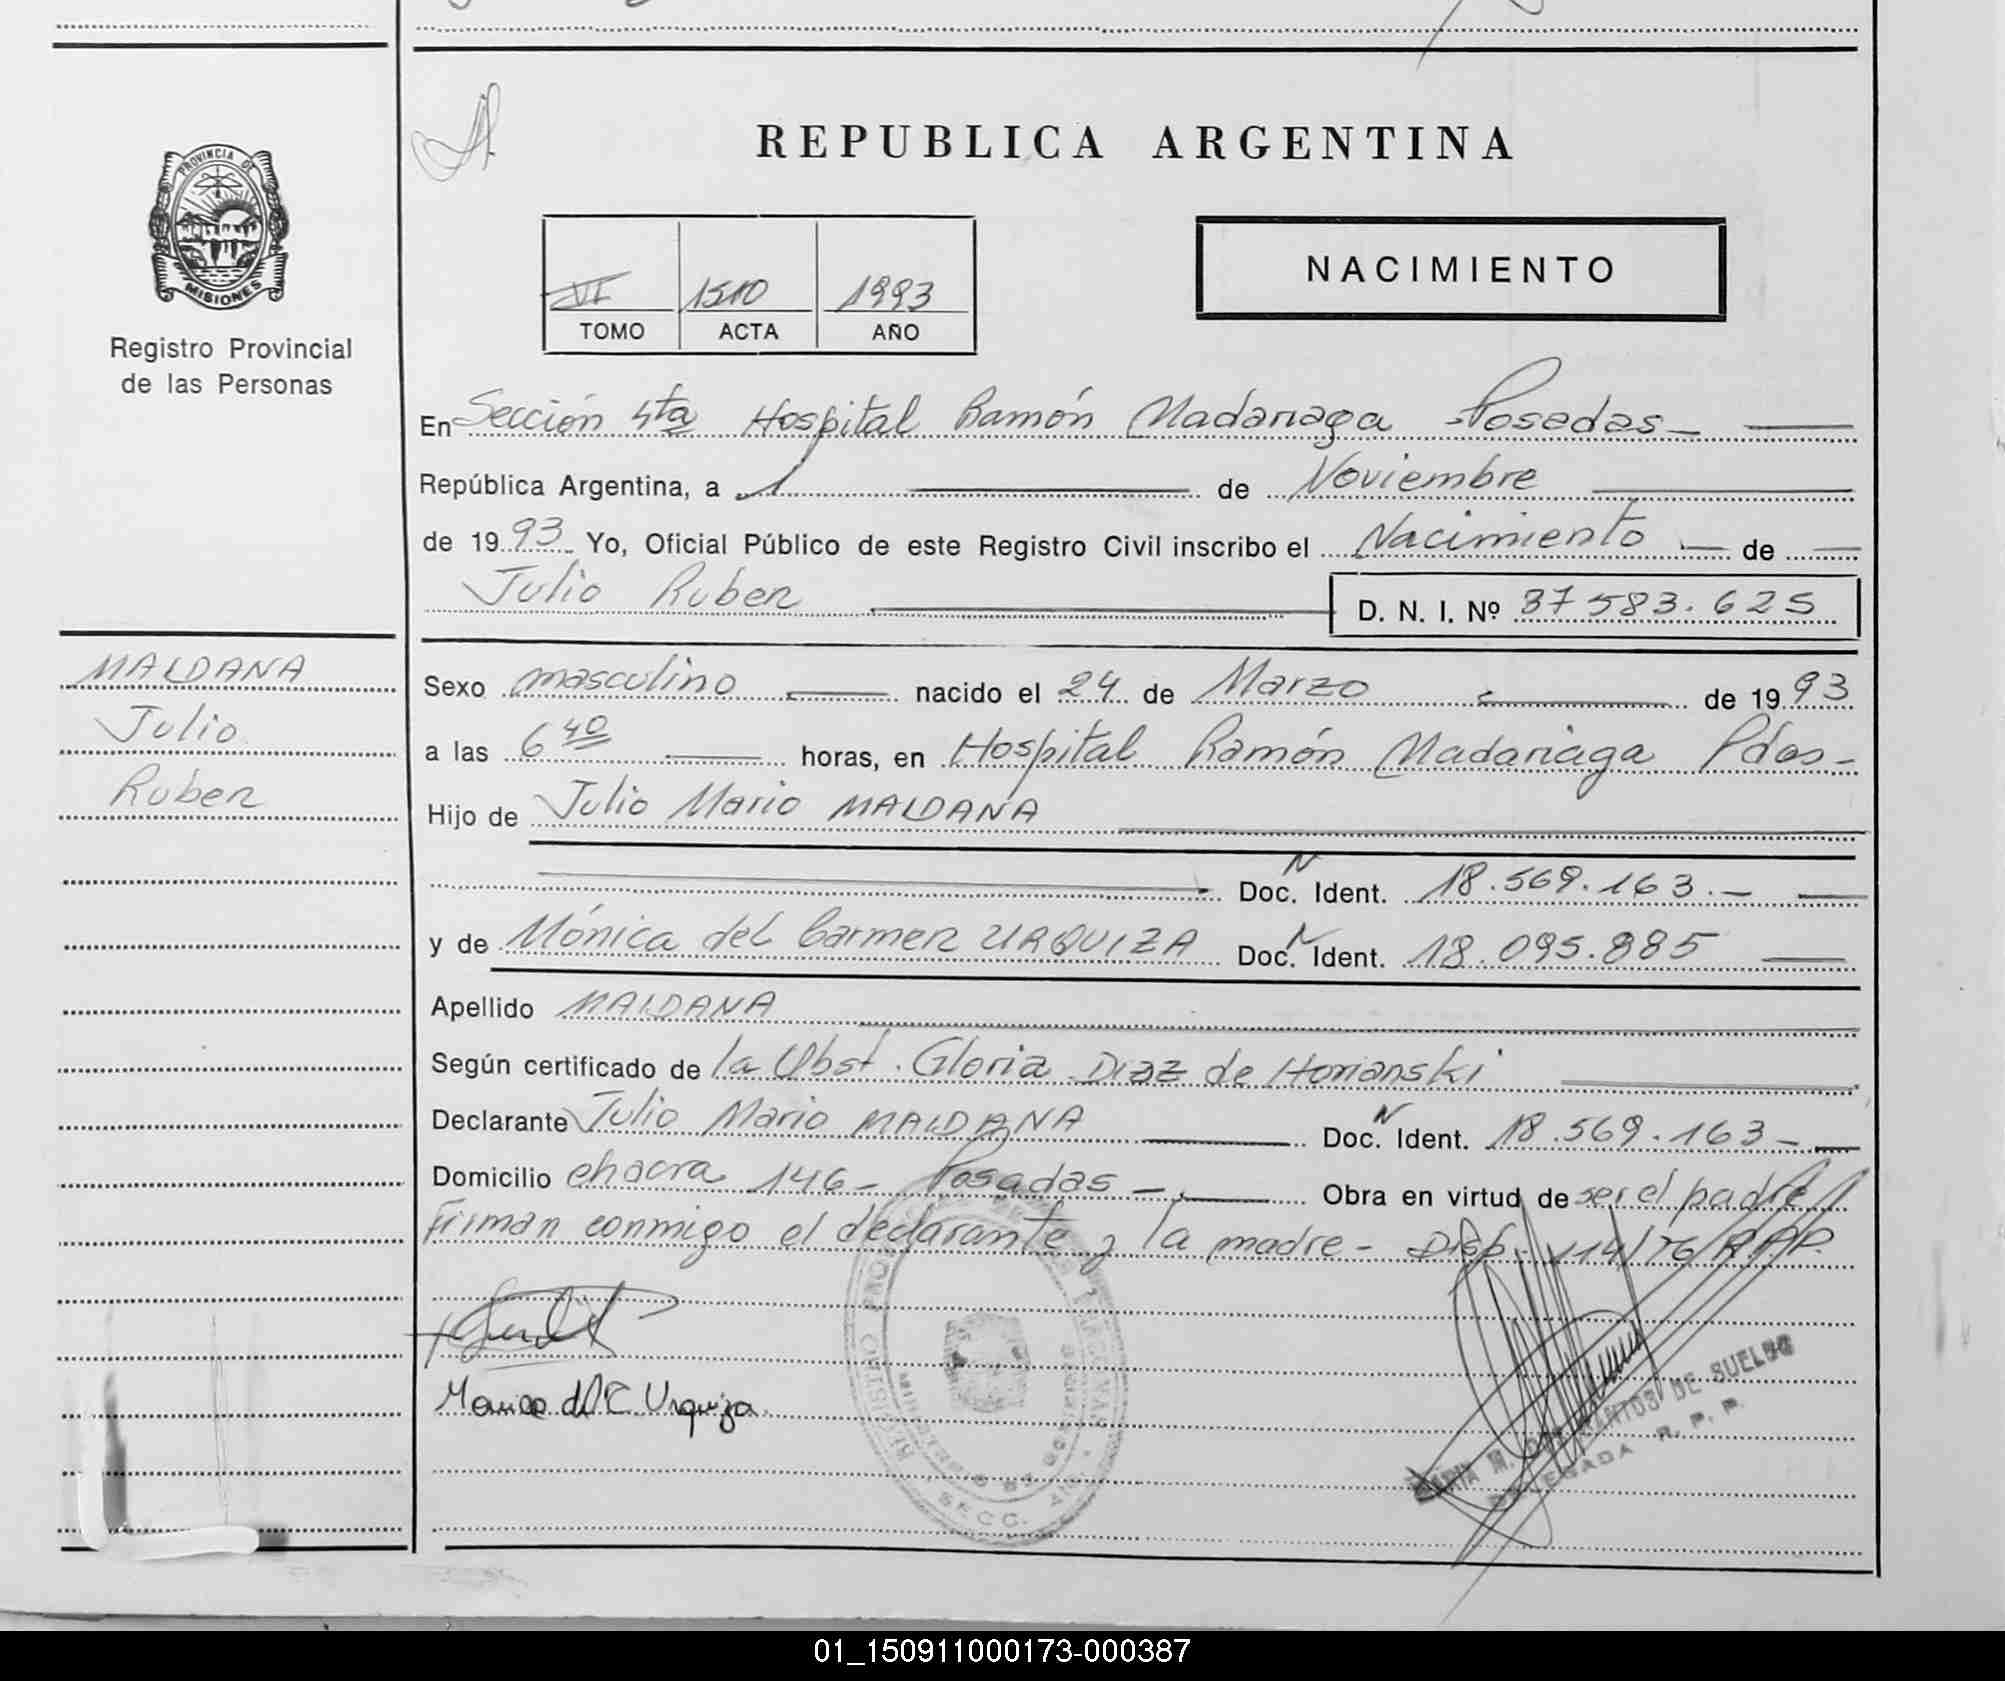 REPUBLICA ARGENTINA
PROVINCIA DE
MISIONES
Registro Provincial
de las Personas
VI 1510 1993
TOMO ACTA AÑO
NACIMIENTO
En Sección 4ta Hospital Ramón Madariaga Posadas —
República Argentina, a 1 — de Noviembre —
de 1993 Yo, Oficial Público de este Registro Civil inscribo el Nacimiento — de —
Julio Ruben — D. N. I. Nº 37583.625
MALDANA
Julio
Ruben
Sexo masculino — nacido el 24 de Marzo — de 1993
a las 6 40 — horas, en Hospital Ramón Madariaga Pdas-
Hijo de Julio Mario MALDANA —
— Doc. N Ident. 18.569.163.— —
y de Mónica del Carmen URQUIZA Doc. N Ident. 18.095.885 —
Apellido MALDANA —
Según certificado de la Obst. Gloria Diaz de Horianski —
Declarante Julio Mario MALDANA — Doc. N Ident. 18.569.163- —
Domicilio chacra 146- Posadas — Obra en virtud de ser el padre
Firman conmigo el declarante y la madre - Disp. 114/76/R.P.P.
Monica del C Urquiza
REGISTRO
SECC.
MARIA M. SANTOS DE SUELDO
DELEGADA R. P. P.
01_150911000173-000387